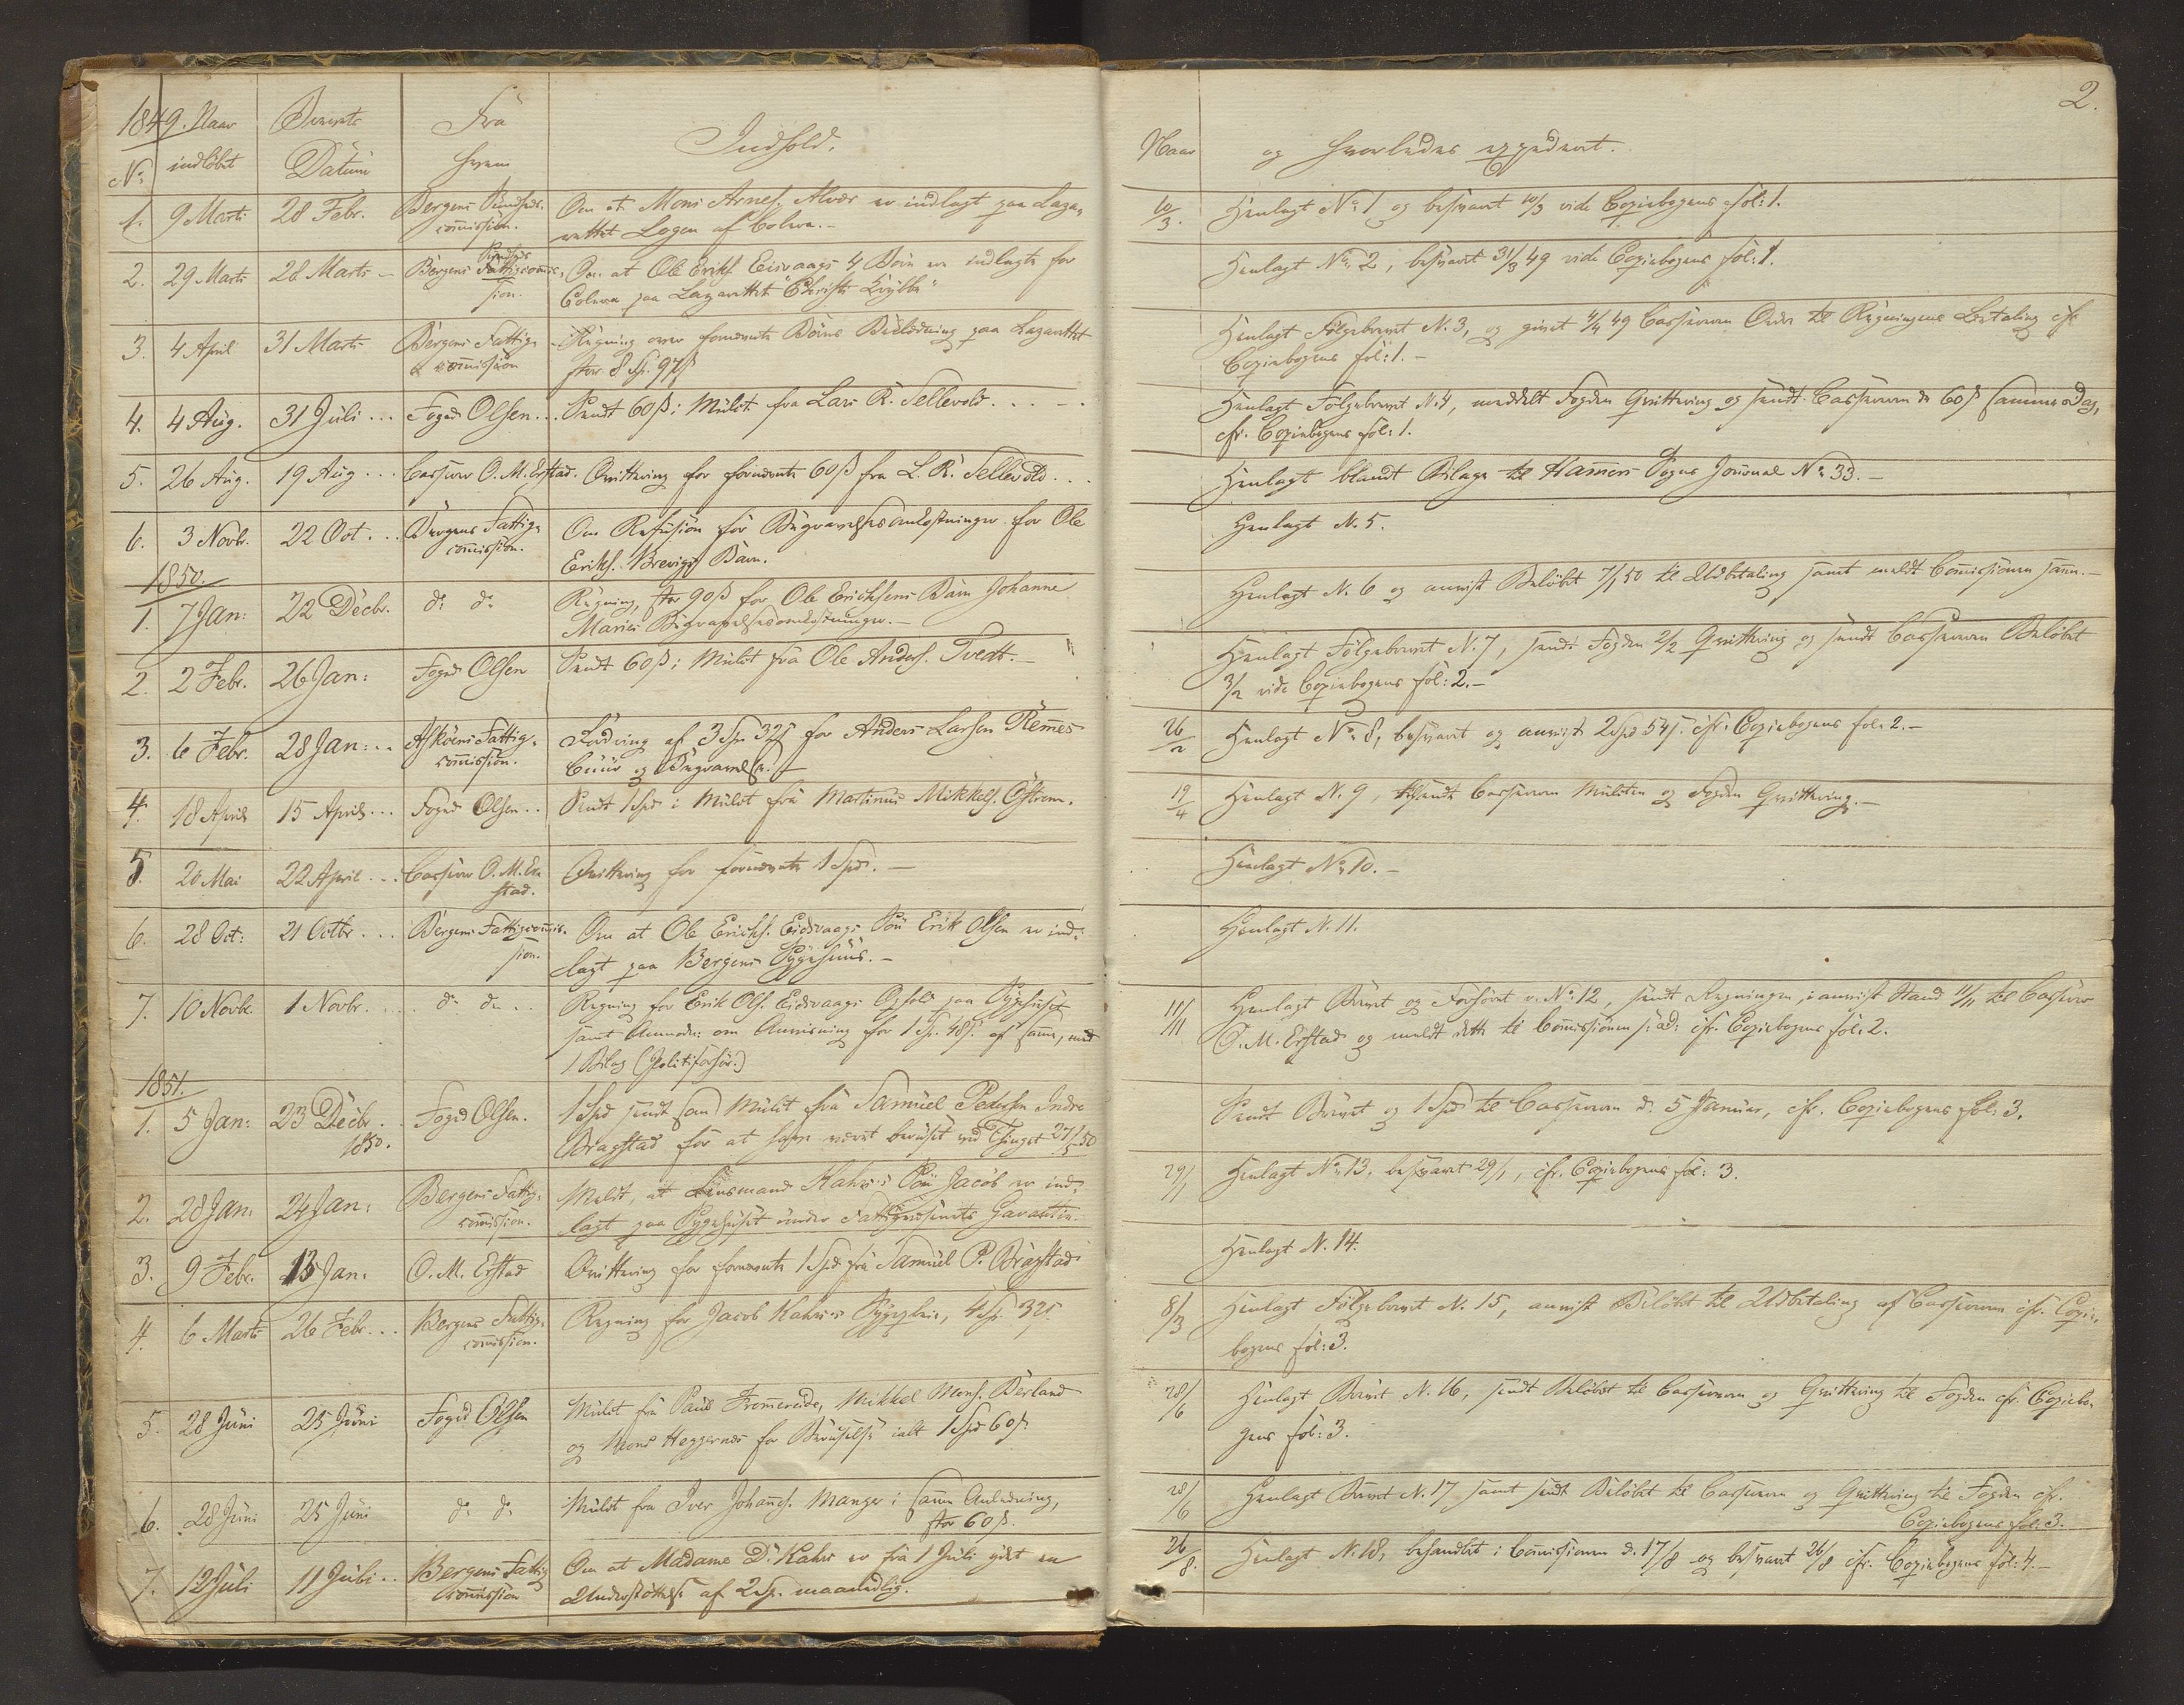 2.
1849. Naar Brevets Fra
No indløbet Datum hvem Indhold.
Naar og hvorledes expederet.
1. 9 Marts 28 Febr. Bergens Sundheds- Om at Mons Arnes. Alvær er indlagt paa Laza-
commission. rettet Logen af Colera.-
10/3. Henlagt No 1 og besvaret 10/3 vide Copiebogens fol: 1.
Sundheds
2. 29 Marts 28 Marts - Bergens Fattigcommis- Om at Ole Eriks. Eidsvaags 4 Børn er indlagte for
sion. Colera paa Lazarettet "Christi Krybbe"
Henlagt No 2, besvaret 31/3 49 vide Copiebogens fol: 1.
3. 4 April 31 Marts Bergens Fattig- Regning over fornævnte Børns Pleie paa Lazarettet
commission stor 8 Sp. 97 ß
Henlagt Følgebrevet N. 3, og givet 4/4 49 Cassereren Ordre til Regningens Betaling cfr
Copiebogens fol: 1.-
4. 4 Aug. 31 Juli ... Foged Olsen ... Sendt 60 ß i Mulct fra Lars R. Sellevold.....
Henlagt Følgebrevet N. 4, meddelt Fogden Qvittering og sendt Cassereren de 60 ß samme Dag,
cfr. Copiebogens fol: 1.
5. 26 Aug. 19 Aug ... Casserer O. M. Erstad. Qvittering for fornævnte 60 ß fra L. R. Sellevold...
Henlagt blandt Bilage til Hammers Sogns Journal No 33.-
6. 3 Novbr. 22 Oct. .. Bergens Fattig- Om Refusion for Begravelsesomkostninger for Ole
commission. Eriks. Brevigs Barn.
Henlagt N. 5.
1850.
1. 7 Jan: 22 Decbr. do do Regning, stor 90 ß for Ole Erichsens Barn Johanne
Maries Begravelsesomkostninger.-
Henlagt N. 6 og anvist Beløbet 7/1 50 til Udbetaling samt meldt Commissionen samme.-
2. 2 Febr. 26 Jan: Foged Olsen Sendt 60 ß i Mulct fra Ole Anders. Tvedt.-
Henlagt Følgebrevet N. 7, sendt Fogden 2/2 Qvittering og sendt Cassereren Beløbet
3/2 vide Copiebogens fol: 2.-
3. 6 Febr. 28 Jan: .. Askøens Fattig- Fordring af 3 Sp. 32 ß for Anders Larsen Remmes
commission. Cuur og Begravelse.-
26/2 Henlagt No 8, besvaret og anvist 2 Spd 54 ß. cfr. Copiebogens fol: 2.-
4. 18 April 15 April ... Foged Olsen .. Sendt 1 Spd i Mulct fra Martinus Mikkels. Østrem.
19/4 Henlagt N. 9, tilsendt Casserern Mulcten og Fogden Qvittering.-
5. 20 Mai 22 April ... Casserer O. M. Er-
stad. Qvittering for fornævnte 1 Spd.-
Henlagt No 10.-
6. 28 Oct: 21 Octbr ... Bergens Fattigcommis- Om at Ole Erichs. Eidsvaags Søn Erik Olsen er ind-
sion. lagt paa Bergens Sygehuus.-
Henlagt N. 11.
7. 10 Novbr. 1 Novbr. ... do do .. Regning for Erik Ols. Eidsvaags Ophold paa Sygehuset
samt Anmodn: om Anvisning for 1 Sp. 48 ß. af samme, med
1 Bilag (Politiforhør.)
11/11 Henlagt Brevet og Forhøret v. No 12, sendt Regningen, i anvist Stand 11/11 til Casserer
O. M. Erstad og meldt dette til Commissionen s: d: cfr. Copiebogens fol: 2.
1851.
1. 5 Jan: 23 Decbr. .. Foged Olsen. 1 Spd sendt som Mulct fra Samuel Pedersen Indre
1850. Bragstad for at have været beruset ved Thinget 27/5 50
Sendt Brevet og 1 Spd til Casserern d. 5 Januar, cfr. Copiebogens fol: 3.
2. 28 Jan: 24 Jan: Bergens Fattig- Meldt, at Lensmand Kahrs's Søn Jacob er ind-
commission. lagt paa Sygehuset under Fattigvæsenets Garantie.
29/1 Henlagt No 13, besvaret 29/1, cfr. Copiebogens fol: 3.
3. 9 Febr. 13 Jan: O. M. Erstad Qvittering for fornævnte 1 Spd fra Samuel P. Bragstad
Henlagt N. 14.
4. 6 Marts 26 Febr. .. Bergens Fattig- Regning for Jacob Kahrs's Sygepleie, 4 Sp. 32 ß.
commission.
8/3 Henlagt Følgebrevet N. 15, anvist Beløbet til Udbetaling af Casserern cfr. Copie-
bogens fol: 3.
5. 28 Juni 25 Juni Foged Olsen Mulct fra Paul Fromereide, Mikkel Mons. Børland
og Mons Heggernæs for Beruselse ialt 1 Spd 60 ß.
28/6 Henlagt Brevet N. 16, sendt Beløbet til Casserern og Qvittering til Fogden cfr. Copiebo-
gens fol: 3.
6. 28 Juni 25 Juni do do Mulct fra Iver Johannes. Manger i samme Anledning,
stor 60 ß.
28/6 Henlagt Brevet N. 17 samt sendt Beløbet til Casserern og Qvittering til Fogden cfr.
Copiebogens fol: 3.
7. 12 Juli 11 Juli .. Bergens Fattig- Om at Madame D. Kahrs er fra 1 Juli ydet en
commission Understøttelse af 2 Sp. maanedlig.
26/8. Henlagt N. 18, behandlet i Commissionen d. 17/8 og besvaret 26/8 cfr. Copiebogens fol: 4.-